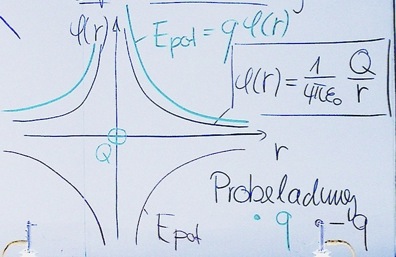 φ(r)
Epot = qφ(r)
φ(r) = 1/4πε₀ Q/r
Q
r
Probeladung
Epot
q -q